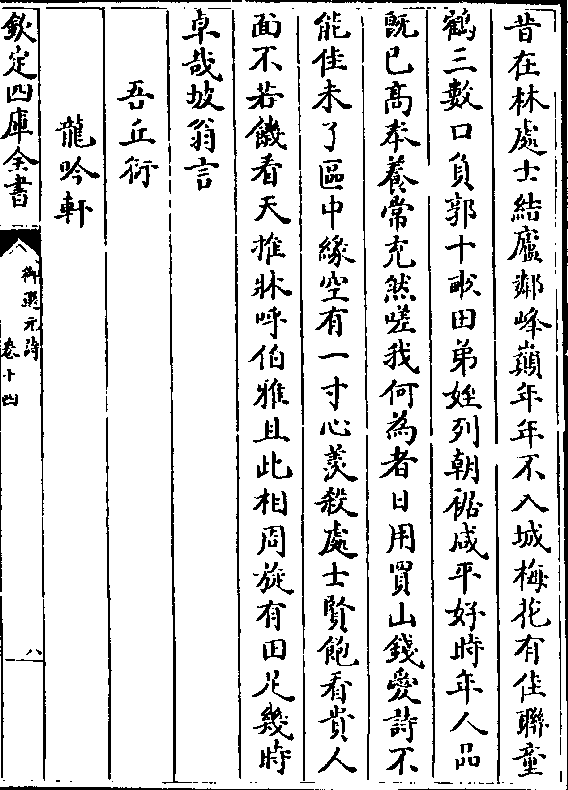 昔在林處士結廬鄰峰巔年年不入城梅花有佳聯童
鶴三數口負郭十畝田弟姪列朝裾咸平好時年人品
既已髙奉養常充然嗟我何為者日用買山錢愛詩不
能佳未了區中緣空有一寸心羡殺處士賢飽看貴人
面不若饑看天推牀呼伯雅且此相周旋有田足幾時
卓哉坡翁言
吾丘衍
龍吟軒
欽定四庫全書
御選元詩
卷十四
八